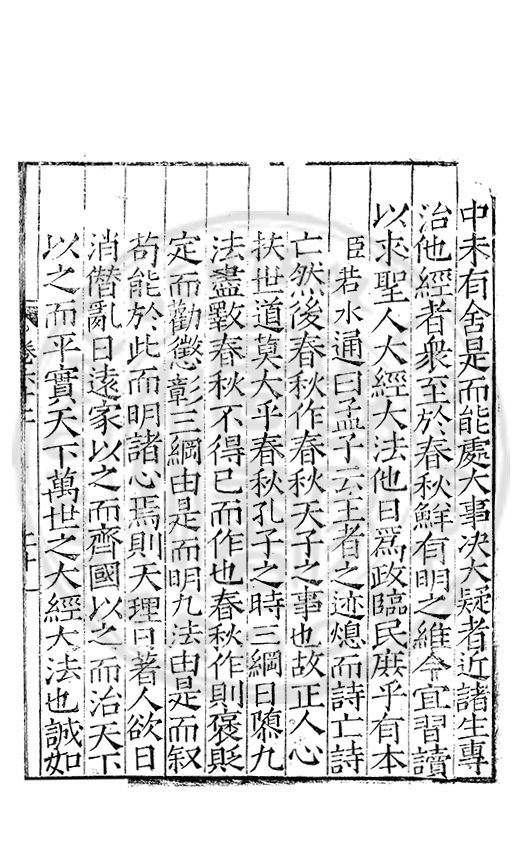 中未有舍是而能處大事决大疑者近諸生專
治他經者衆至於春秋鮮有明之維今宜習讀
以求聖人大經大法他日爲政臨民庶乎有本
臣若水通曰孟子云王者之迹熄而詩亡詩
亡然後春秋作春秋天子之事也故正人心
扶世道莫大乎春秋孔子之時三綱日隳九
法盡斁春秋不得已而作也春秋作則褒貶
定而勸懲彰三綱由是而明九法由是而叙
苟能於此而明諸心焉則天理日著人欲日
消僭亂日遠家以之而齊國以之而治天下
以之而平實天下萬世之大經大法也誠如